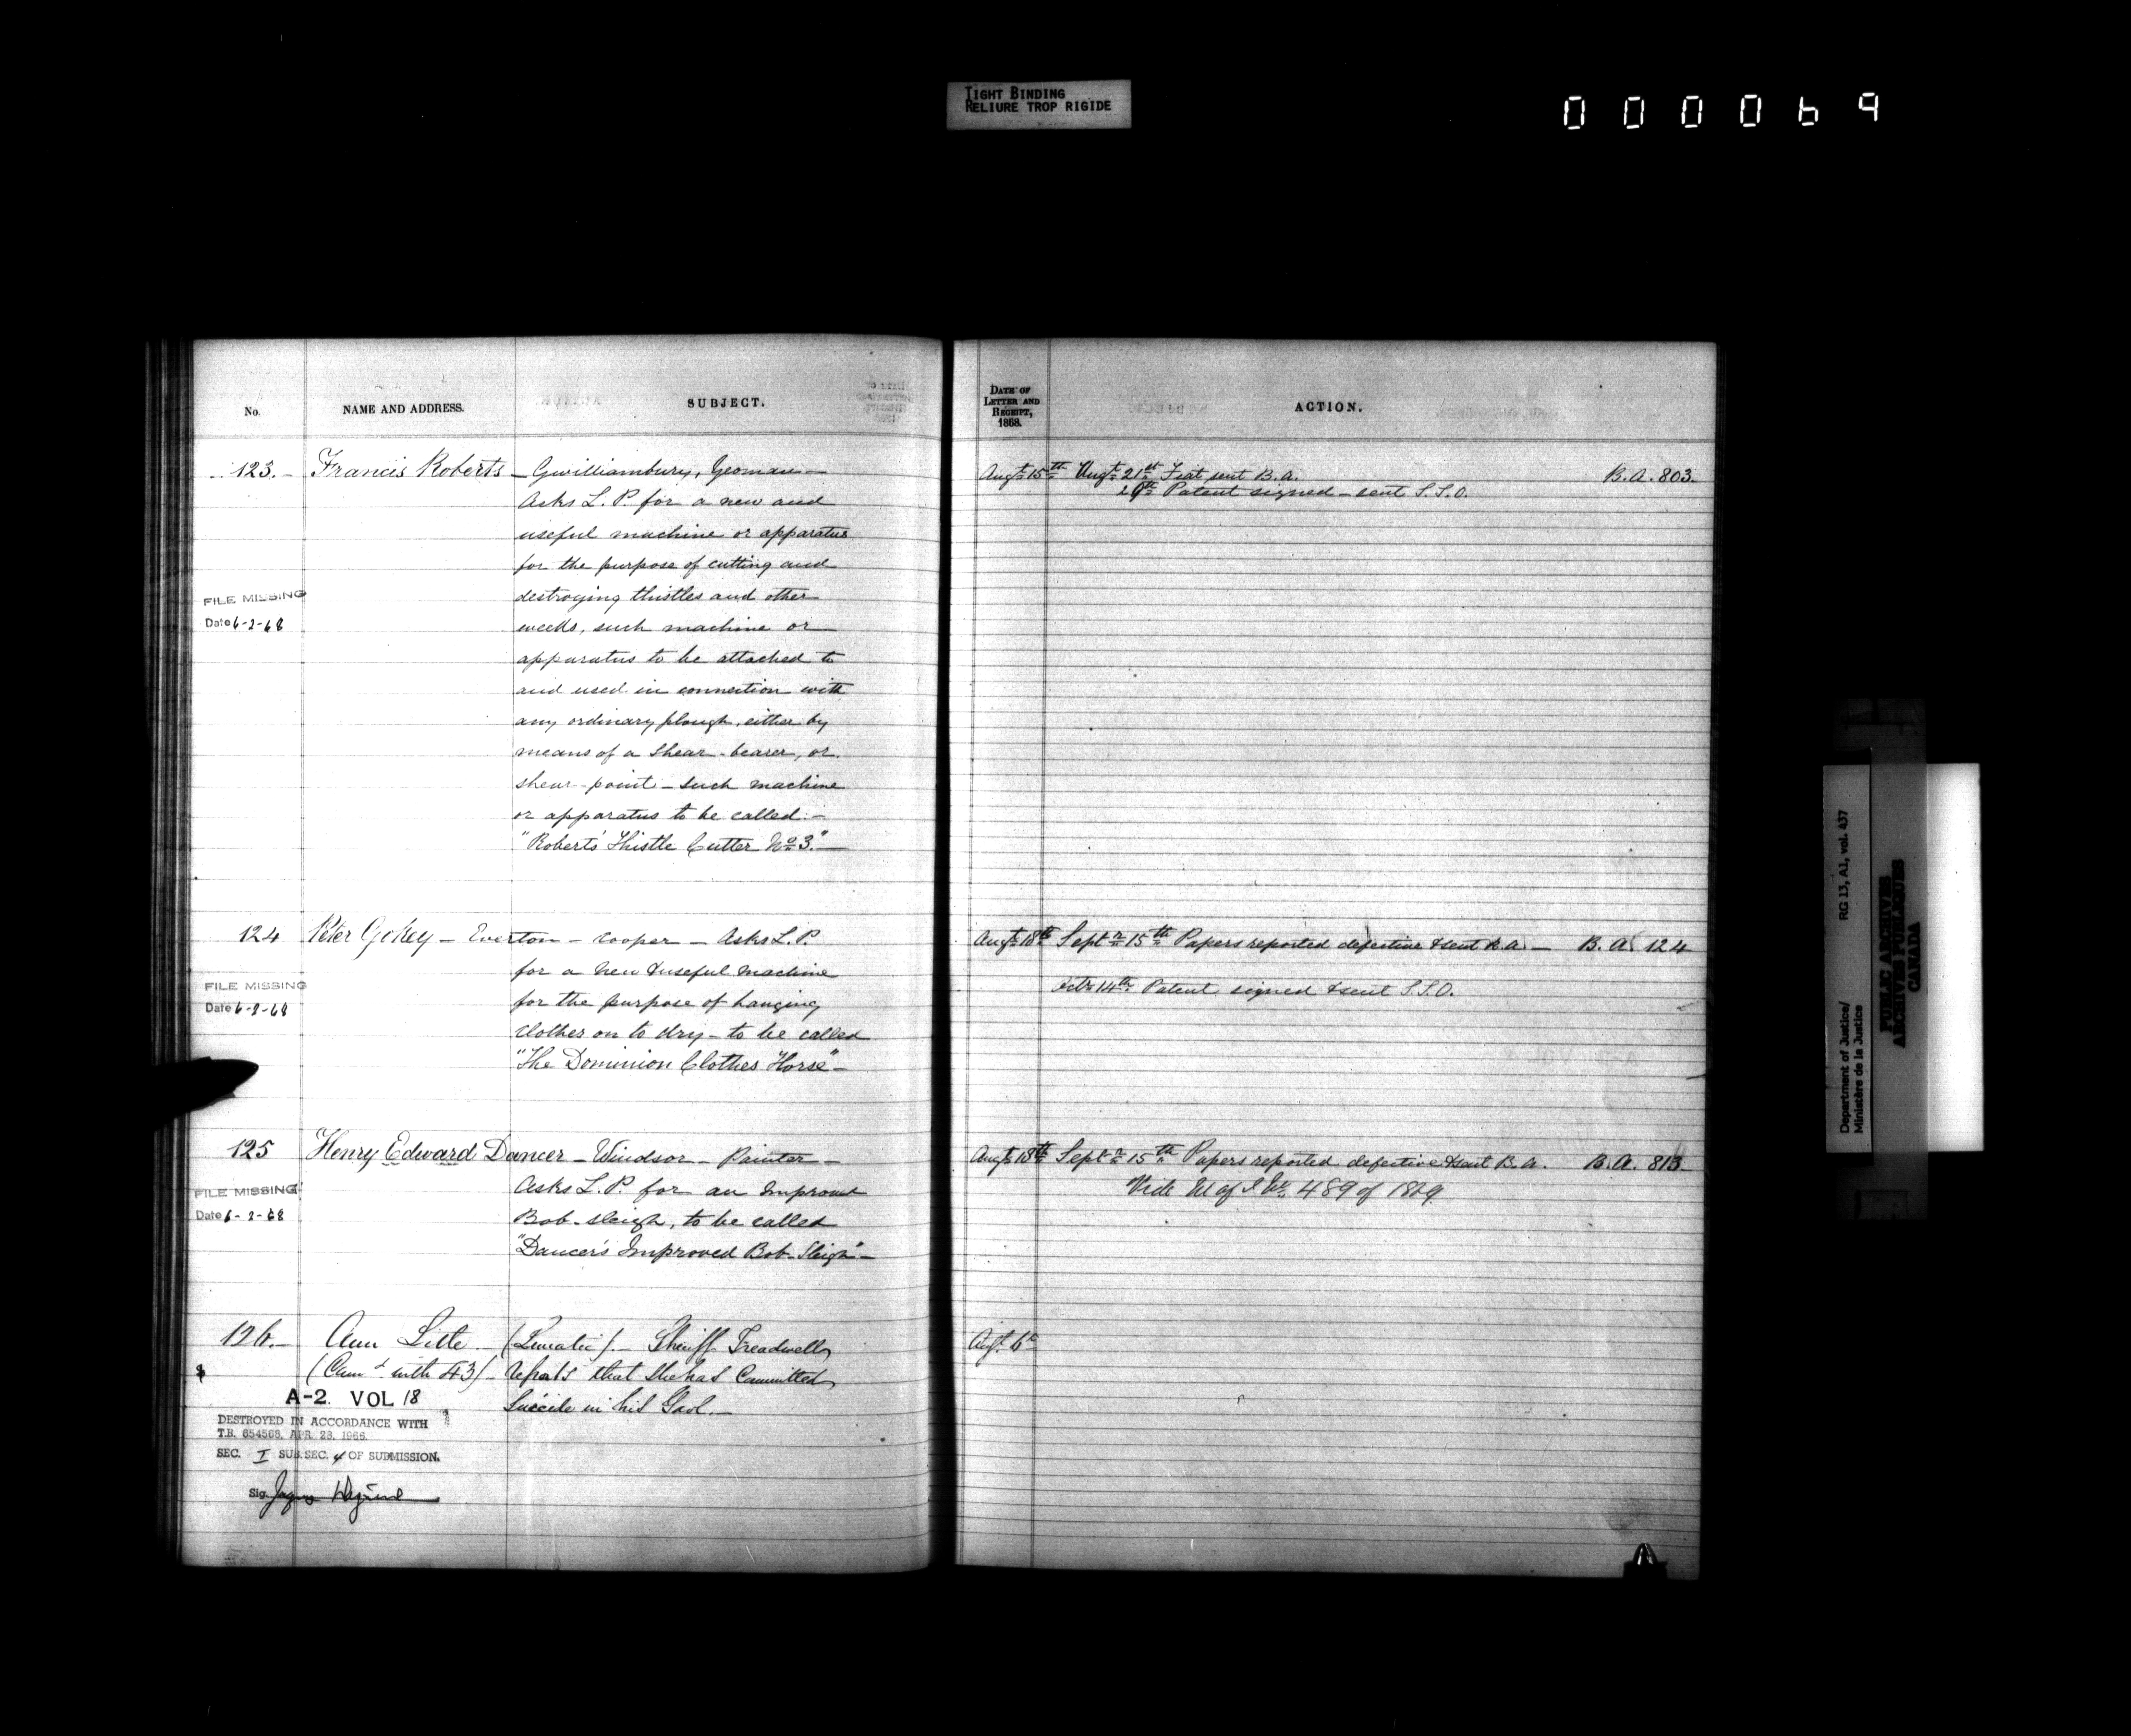 TIGHT BINDING
RELIURE TROP RIGIDE
000069
No.
NAME AND ADDRESS.
SUBJECT.
DATE OF
LETTER AND
RECEIPT,
1868.
ACTION.
123. – Francis Roberts – Gwilliambury, Yeoman –
Asks L. P. for a new and
useful machine or apparatus
for the purpose of cutting and
destroying thistles and other
weeds, such machine or
apparatus to be attached to
and used in connection with
any ordinary plough, either by
means of a Shear-bearer, or
shear-point – such machine
or apparatus to be called: –
"Roberts' Thistle Cutter No 3." –
FILE MISSING
Date 6-2-68
Augt 15th Augt 21st Fiat sent B.A. B.A. 803.
29th Patent signed – sent S.S.O.
124 Peter Gokey – Everton – Cooper – Asks L.P.
for a new & useful machine
for the purpose of hanging
clothes on to dry – to be called
"The Dominion Clothes Horse" –
FILE MISSING
Date 6-2-68
Augt 18th Septr 15th Papers reported defective & sent B.A. – B.A. 124
Octr 14th Patent signed & sent S.S.O.
125 Henry Edward Dancer – Windsor – Painter –
Asks L.P. for an Improved
Bob-sleigh, to be called
"Dancer's Improved Bob-Sleigh" –
FILE MISSING
Date 6-2-68
Augt 18th Septr 15th Papers reported defective & sent B.A. B.A. 813
Vide 489 of 1869
126. – Ann Little (Lunatic). – Sheriff Treadwell
(Cannd with 43) – Reports that she has Committed
Suicide in his Gaol. –
Augt 6th
A-2. VOL 18
DESTROYED IN ACCORDANCE WITH
T.B. 654568, APR. 28, 1966.
SEC. I SUB.SEC. 4 OF SUBMISSION.
Sig.
Department of Justice/ RG 13, A1, vol. 437
Ministère de la Justice
PUBLIC ARCHIVES
ARCHIVES PUBLIQUES
CANADA